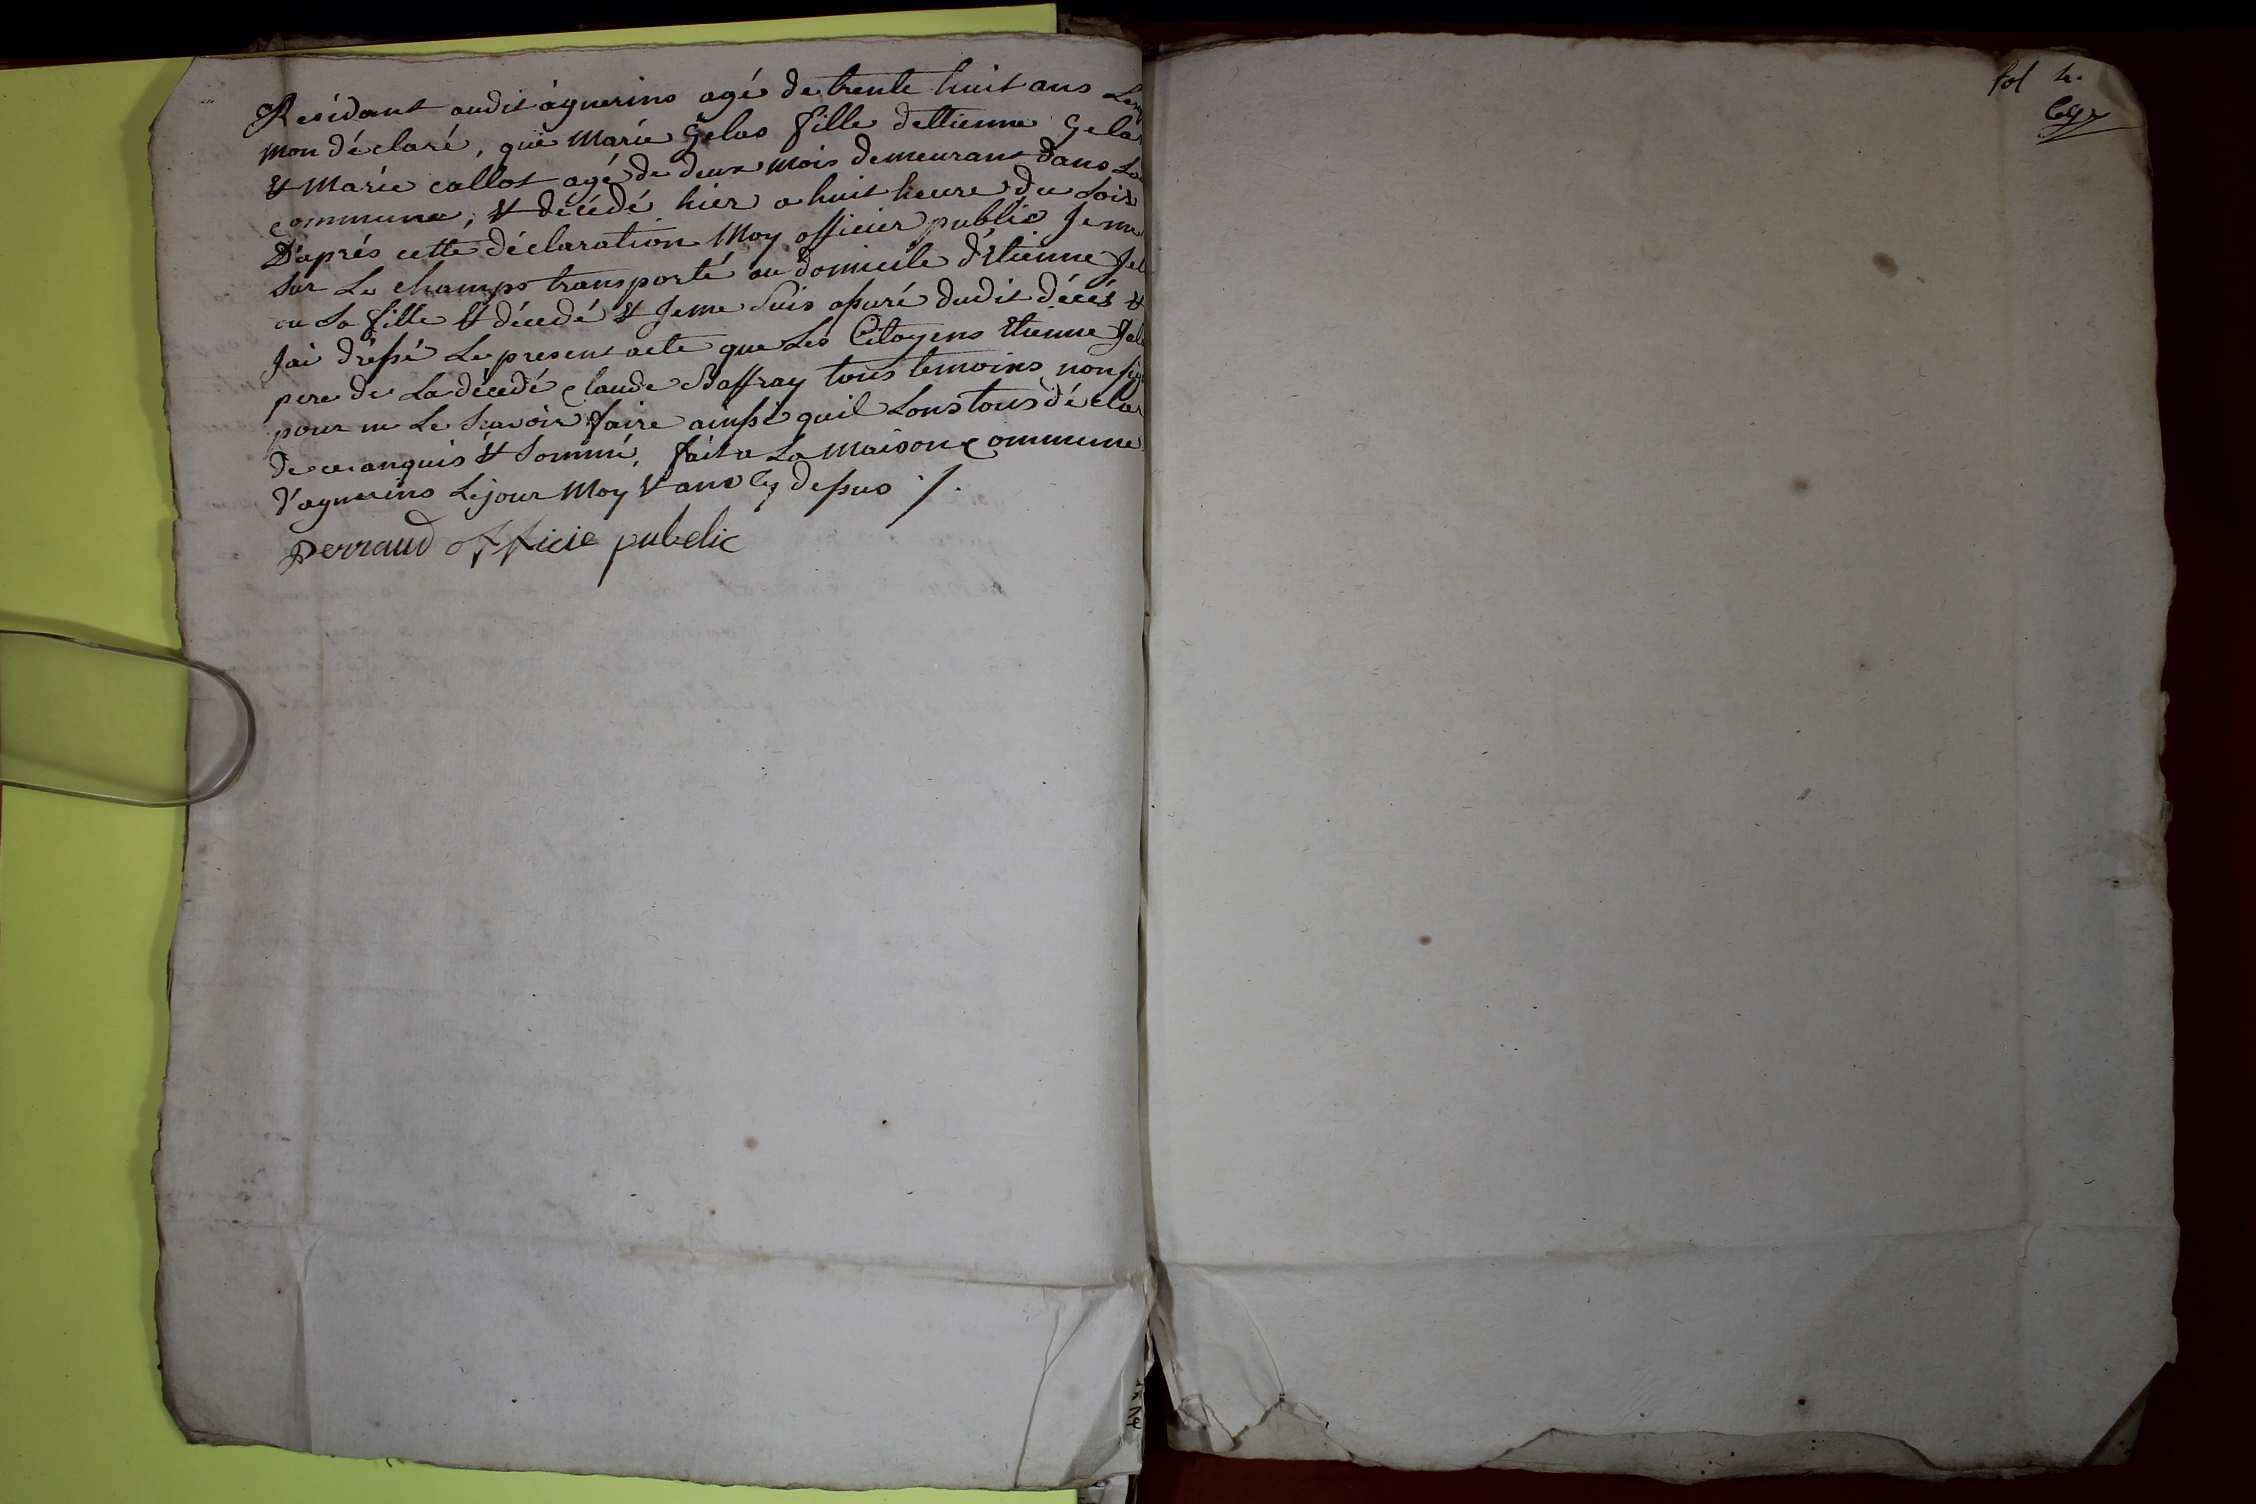 Residant audit aynerins agé de trente huit ans
mon déclaré, que Marie Gelas fille dettienne Gela
et Marie callot agé de deux mois demeurant dans La
commune, et décédé hier a huit heure du soir
D'aprés cette déclaration Moy officier public Je me
sur Le champs transporté au domicile d'Etienne Jel
ou La fille et décedé et Je me suis assuré dudit décés et
Jai dressé Le present acte que Les Citoyens Etienne Jela
pere de La décedé Claude Baffray tous temoins non sig
pour ne Le scavoir faire ainsi quil Lons tous décla
de ce anquis et sommé, fait a La Maison Commune
d'aynerins Le jour Moy et ans Cy dessus ./.
perraud officie publelic
fol